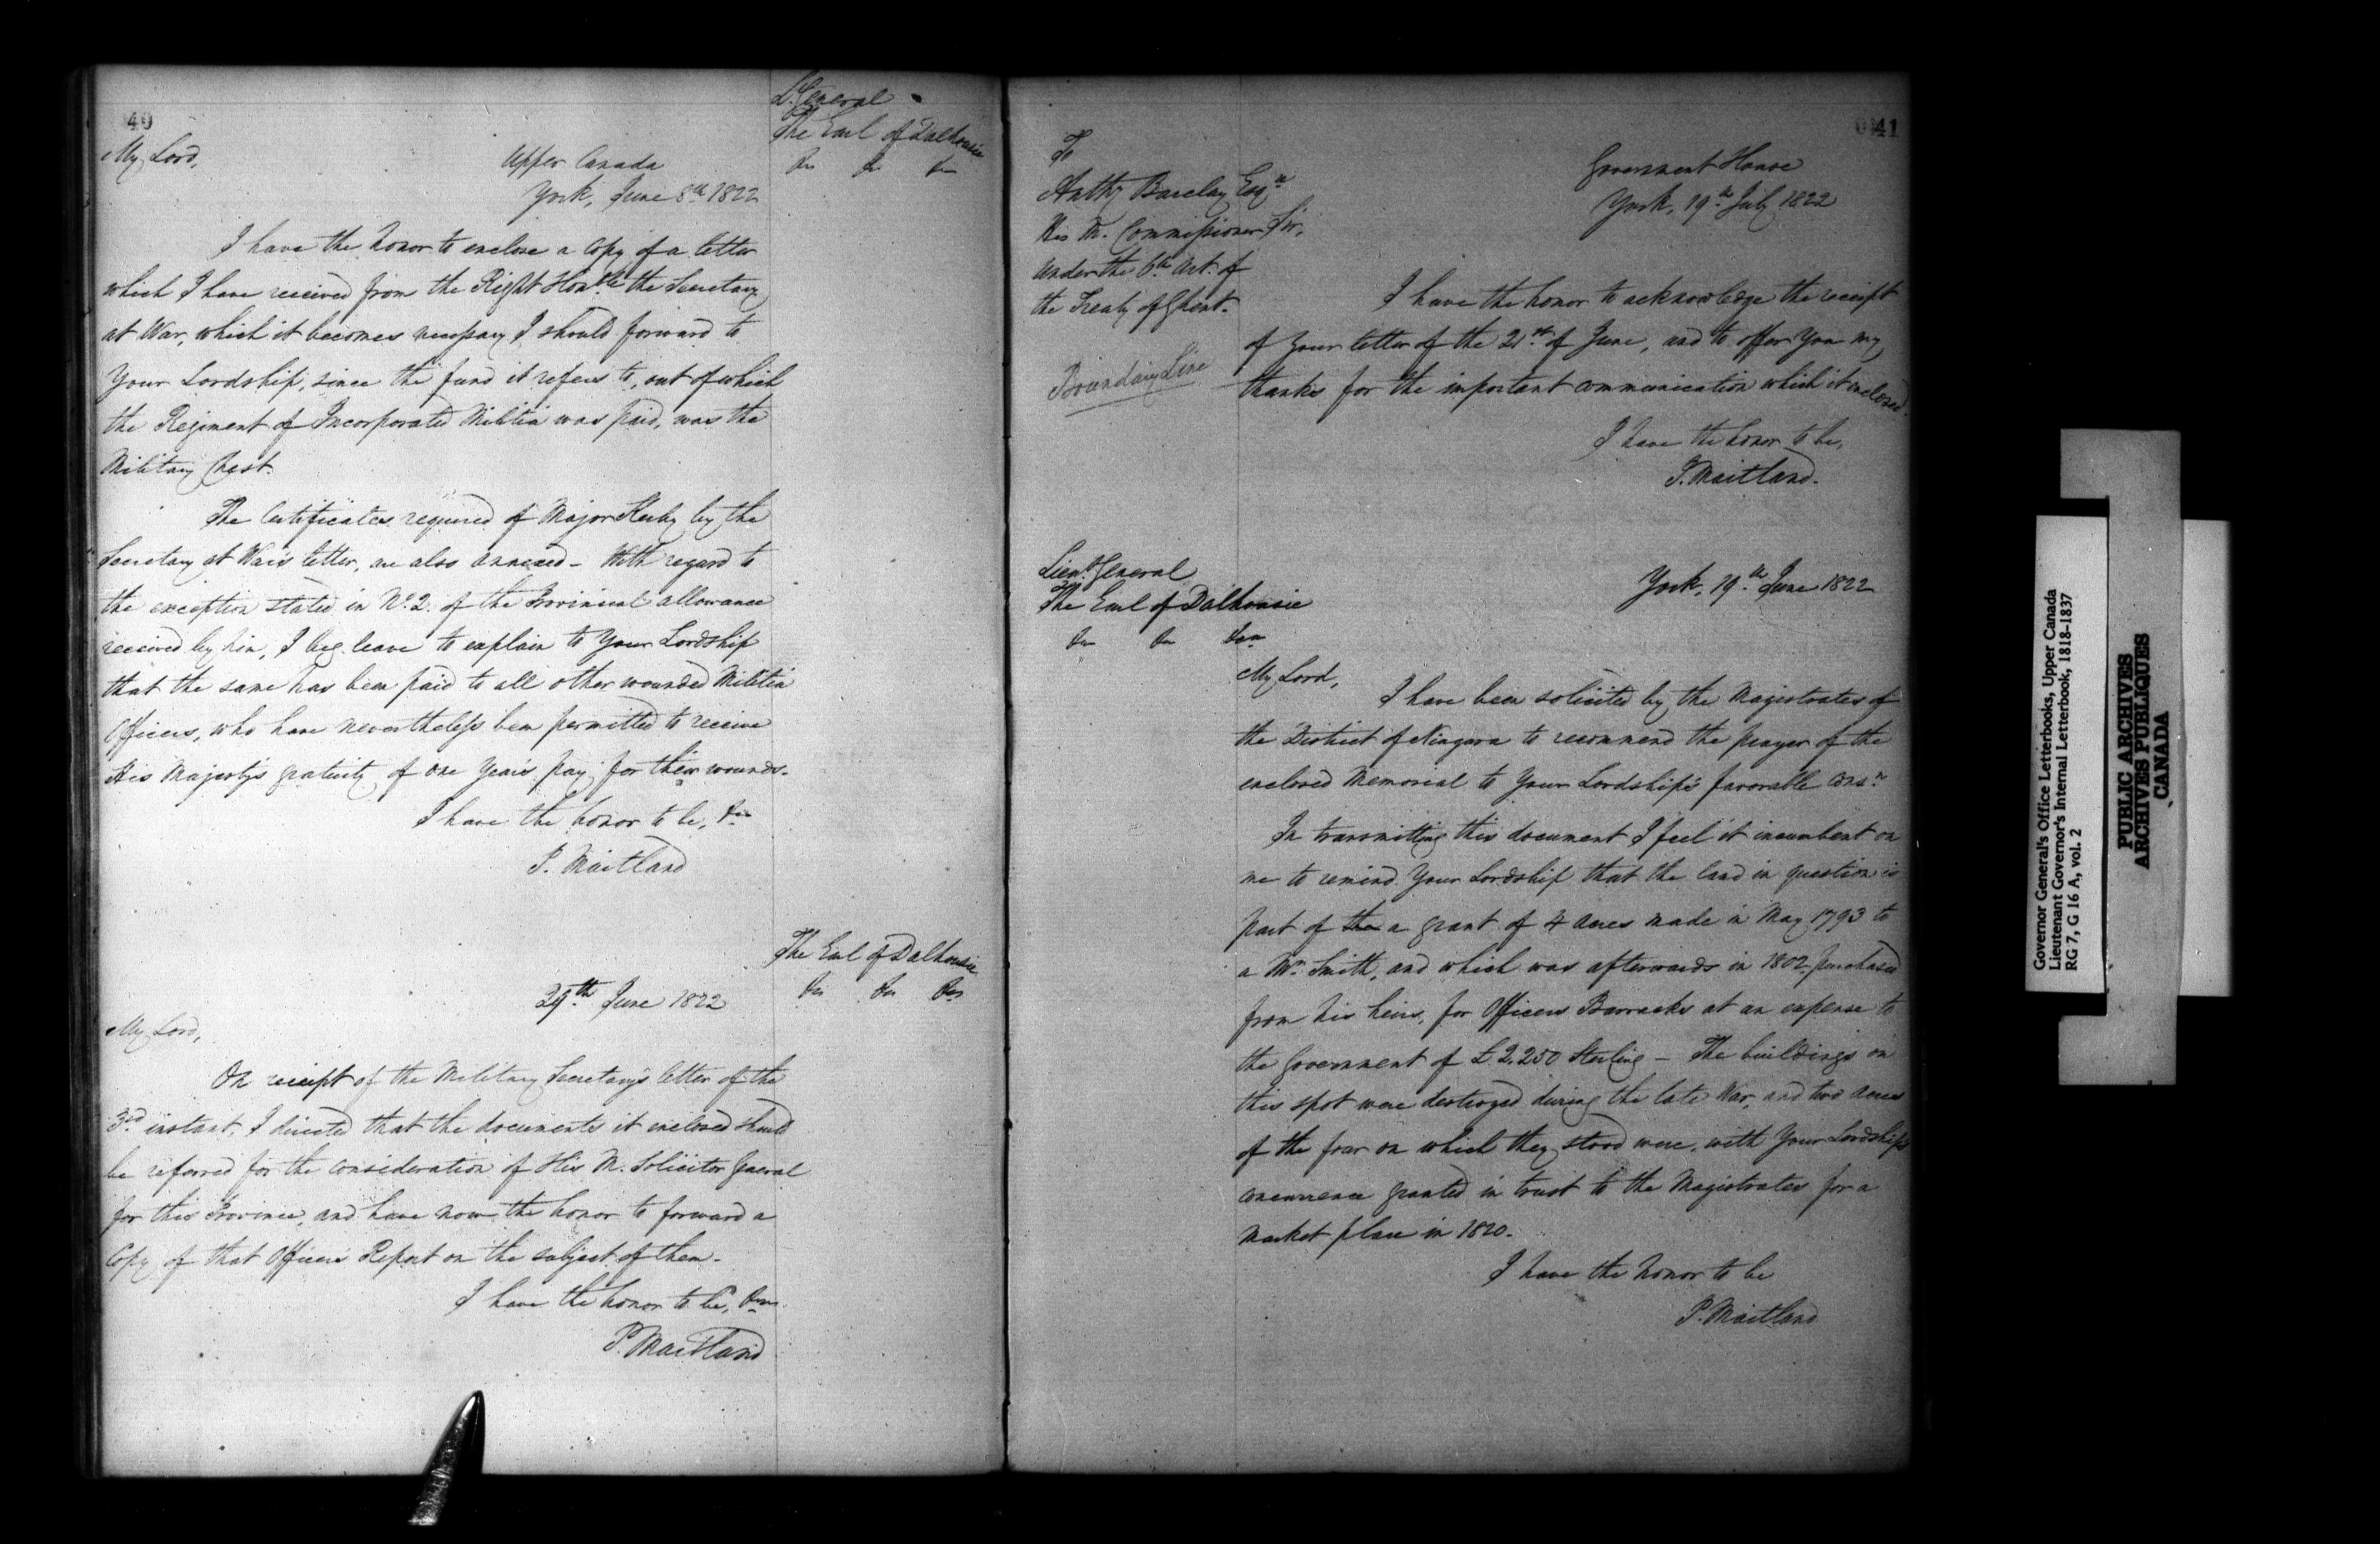 40
Lt. General
The Earl of Dalhousie
&c &c &c
My Lord,
Upper Canada
York, June 8th 1822
I have the honor to enclose a Copy of a letter
which I have received from the Right Honble the Secretary
at War, which it becomes necessary I should forward to
Your Lordship, since the fund it refers to, out of which
the Regiment of Incorporated Militia was paid, was the
Military Chest.
The Certificates required of Major Kerby by the
Secretary at War's letter, are also annexed - With regard to
the exception stated in No. 2. of the Provincial allowance
received by him, I beg leave to explain to Your Lordship
that the same has been paid to all other wounded Militia
Officers, who have nevertheless been permitted to receive
His Majesty's gratuity of one Year's pay for their wounds.
I have the honor to be, &c
P. Maitland
The Earl of Dalhousie
&c &c &c
29th June 1822
My Lord,
On receipt of the Military Secretary's letter of the
3rd instant, I directed that the documents it enclosed should
be referred for the consideration of His M. Solicitor General
for this Province, and have now the honor to forward a
Copy of that Officer's Report on the subject of them.
I have the honor to be, &c
P. Maitland
41
To
Anthy Barclay Esqre
His M. Commissioner
under the 6th Art. of
the Treaty of Ghent.
Boundary Line
Government House
York, 19th July 1822
Sir,
I have the honor to acknowledge the receipt
of your letter of the 21st of June, and to offer you my
thanks for the important communication which it enclosed.
I have the honor to be,
P. Maitland.
Lieut. General
The Earl of Dalhousie
&c &c &c
York, 19th June 1822
My Lord,
I have been solicited by the Magistrates of
the District of Niagara to recommend the prayer of the
enclosed Memorial to Your Lordship's favorable consn
In transmitting this document I feel it incumbent on
me to remind Your Lordship that the land in question is
part of the a grant of 4 acres made in May 1793 to
a Mr Smith, and which was afterwards in 1802 purchased
from his heirs, for Officers Barracks at an expense to
the Government of £2,250 Sterling - The buildings on
this spot were destroyed during the late War, and two acres
of the four on which they stood were, with Your Lordship's
concurrence granted in trust to the Magistrates for a
Market place in 1820.
I have the honor to be
P. Maitland
Governor General's Office Letterbooks, Upper Canada
Lieutenant Governor's Internal Letterbook, 1818-1837
RG 7, G 16 A, vol. 2
PUBLIC ARCHIVES
ARCHIVES PUBLIQUES
CANADA